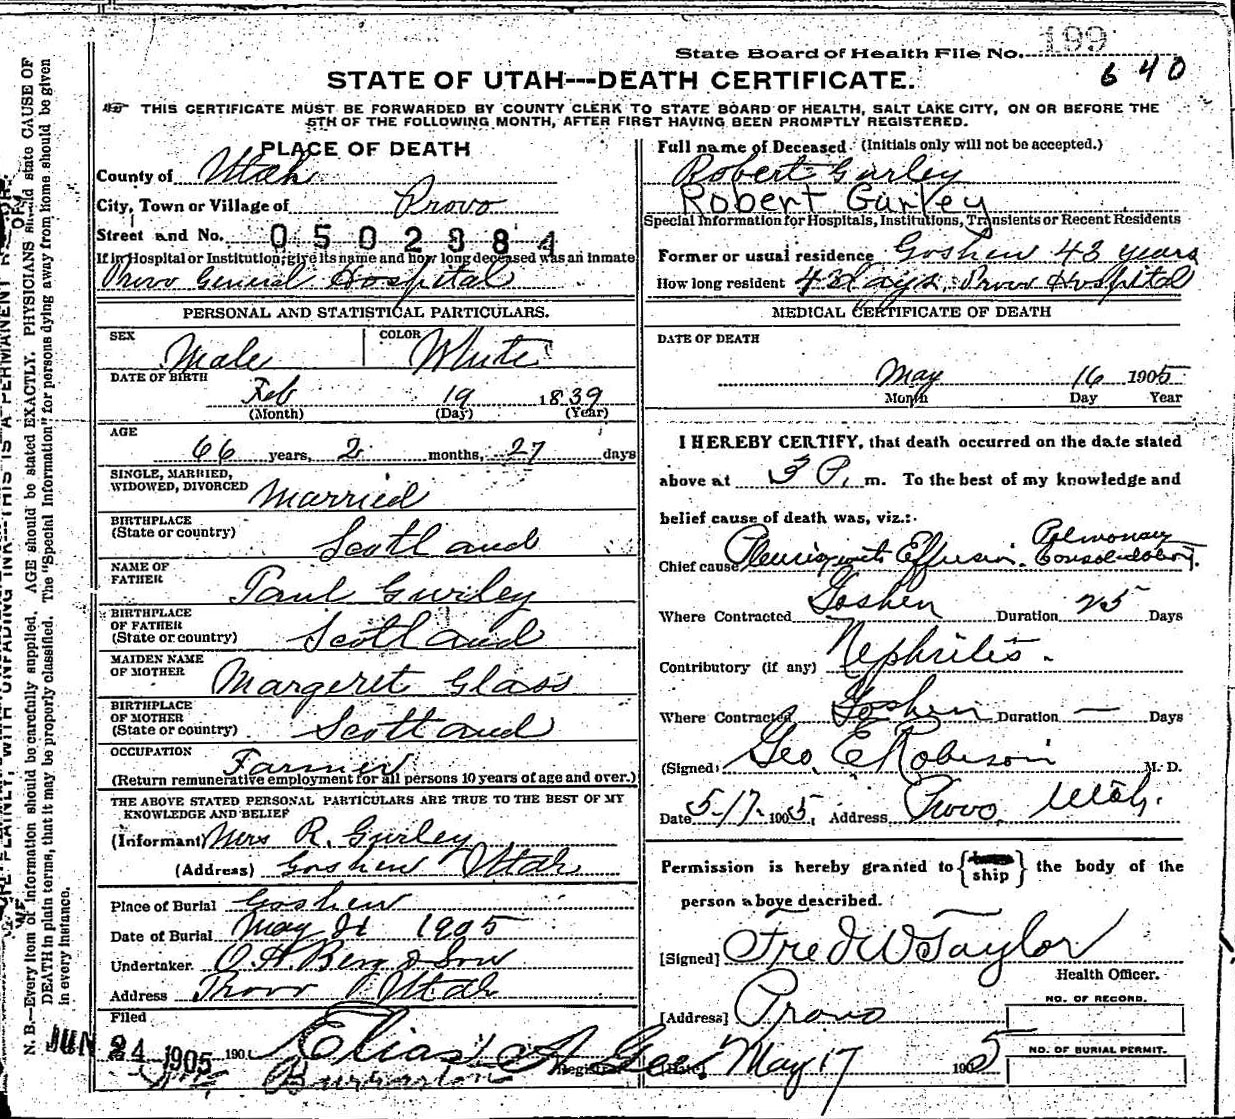 State Board of Health File No. 199
640
STATE OF UTAH---DEATH CERTIFICATE.
THIS CERTIFICATE MUST BE FORWARDED BY COUNTY CLERK TO STATE BOARD OF HEALTH, SALT LAKE CITY, ON OR BEFORE THE
5TH OF THE FOLLOWING MONTH, AFTER FIRST HAVING BEEN PROMPTLY REGISTERED.
PLACE OF DEATH
County of Utah
City, Town or Village of Provo
Street and No. 0502884
If in Hospital or Institution, give its name and how long deceased was an inmate
Provo General Hospital
PERSONAL AND STATISTICAL PARTICULARS.
SEX Male COLOR White
DATE OF BIRTH
Feb 19 1839
(Month) (Day) (Year)
AGE
66 years, 2 months, 27 days
SINGLE, MARRIED,
WIDOWED, DIVORCED Married
BIRTHPLACE
(State or country) Scotland
NAME OF
FATHER Paul Gurley
BIRTHPLACE
OF FATHER
(State or country) Scotland
MAIDEN NAME
OF MOTHER Margeret Glass
BIRTHPLACE
OF MOTHER
(State or country) Scotland
OCCUPATION Farmer
(Return remunerative employment for all persons 10 years of age and over.)
THE ABOVE STATED PERSONAL PARTICULARS ARE TRUE TO THE BEST OF MY
KNOWLEDGE AND BELIEF
(Informant) Mrs R. Gurley
(Address) Goshen Utah
Place of Burial Goshen
Date of Burial May 21 1905
Undertaker. O.H. Berg & Son
Address Provo Utah
Filed
JUN 24 1905 190 Elias A Gee.
Registrar
Full name of Deceased (Initials only will not be accepted.)
Robert Gurley
Robert Gurley
Special Information for Hospitals, Institutions, Transients or Recent Residents
Former or usual residence Goshen 43 years
How long resident 43 days, Provo Hospital
MEDICAL CERTIFICATE OF DEATH
DATE OF DEATH
May 16 1905
Month Day Year
I HEREBY CERTIFY, that death occurred on the date stated
above at 3 P. m. To the best of my knowledge and
belief cause of death was, viz.:
Chief cause Pleurisy with Effusion. Pulmonary Consolidation.
Where Contracted Goshen Duration 25 Days
Contributory (if any) Nephritis.
Where Contracted Goshen Duration — Days
(Signed) Geo. E Robison M. D.
Date 5-17-1905, Address Provo, Utah.
Permission is hereby granted to { ship } the body of the
person above described.
[Signed] Fred W Taylor
Health Officer.
[Address] Provo
NO. OF RECORD.
[Date] May 17 1905
NO. OF BURIAL PERMIT.
N. B.—Every item of information should be carefully supplied. AGE should be stated EXACTLY. PHYSICIANS should state CAUSE OF
DEATH in plain terms, that it may be properly classified. The "Special Information" for persons dying away from home should be given
in every instance.
WRITE PLAINLY, WITH UNFADING INK—THIS IS A PERMANENT